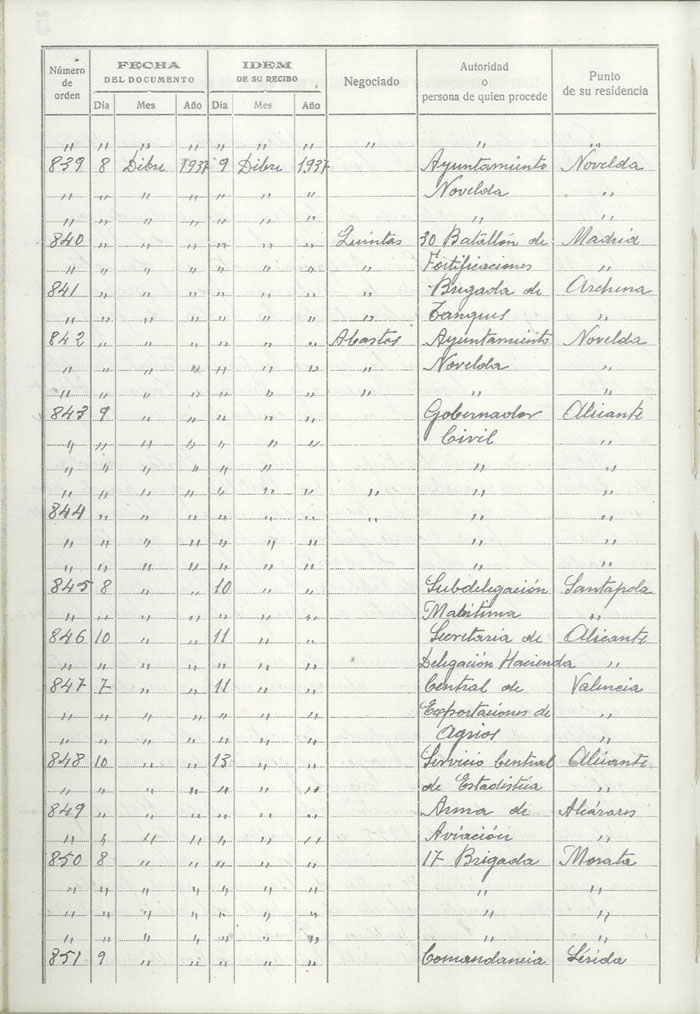 Número de orden FECHA DEL DOCUMENTO IDEM DE SU RECIBO Negociado Autoridad o persona de quien procede Punto de su residencia
Dia Mes Año Dia Mes Año
" " " " " " " " "
839 8 Dibre 1937 9 Dibre 1937 Ayuntamiento Novelda
" " " " " " Novelda "
" " " " " " "
840 " " " " " " Quintas 30 Batallón de Madrid
" " " " " " " Fortificaciones "
841 " " " " " " " Brigada de Archena
" " " " " " " Tanques "
842 " " " " " " Abastos Ayuntamiento Novelda
" " " " " " Novelda "
" " " " " " " " "
843 9 " " " " " Gobernador Alicante
" " " " " " Civil "
" " " " " " "
" " " " " " " " "
844 " " " " " " " " "
" " " " " " " "
" " " " " " " "
845 8 " " 10 " " Subdelegación Santapola
" " " " " " Maritima "
846 10 " " 11 " " Secretaria de Alicante
" " " " " " Delegación Hacienda "
847 7 " " 11 " " Central de Valencia
" " " " " " Exportaciones de "
" " " " " " Agrios "
848 10 " " 13 " " Servicio Central Alicante
" " " " " " de Estadistica "
849 " " " " " " Arma de
" " " " " " Aviación "
850 8 " " " " " 17 Brigada Morata
" " " " " " " "
" " " " " " " "
" " " " " " " "
851 9 " " " " " Comandancia Lérida